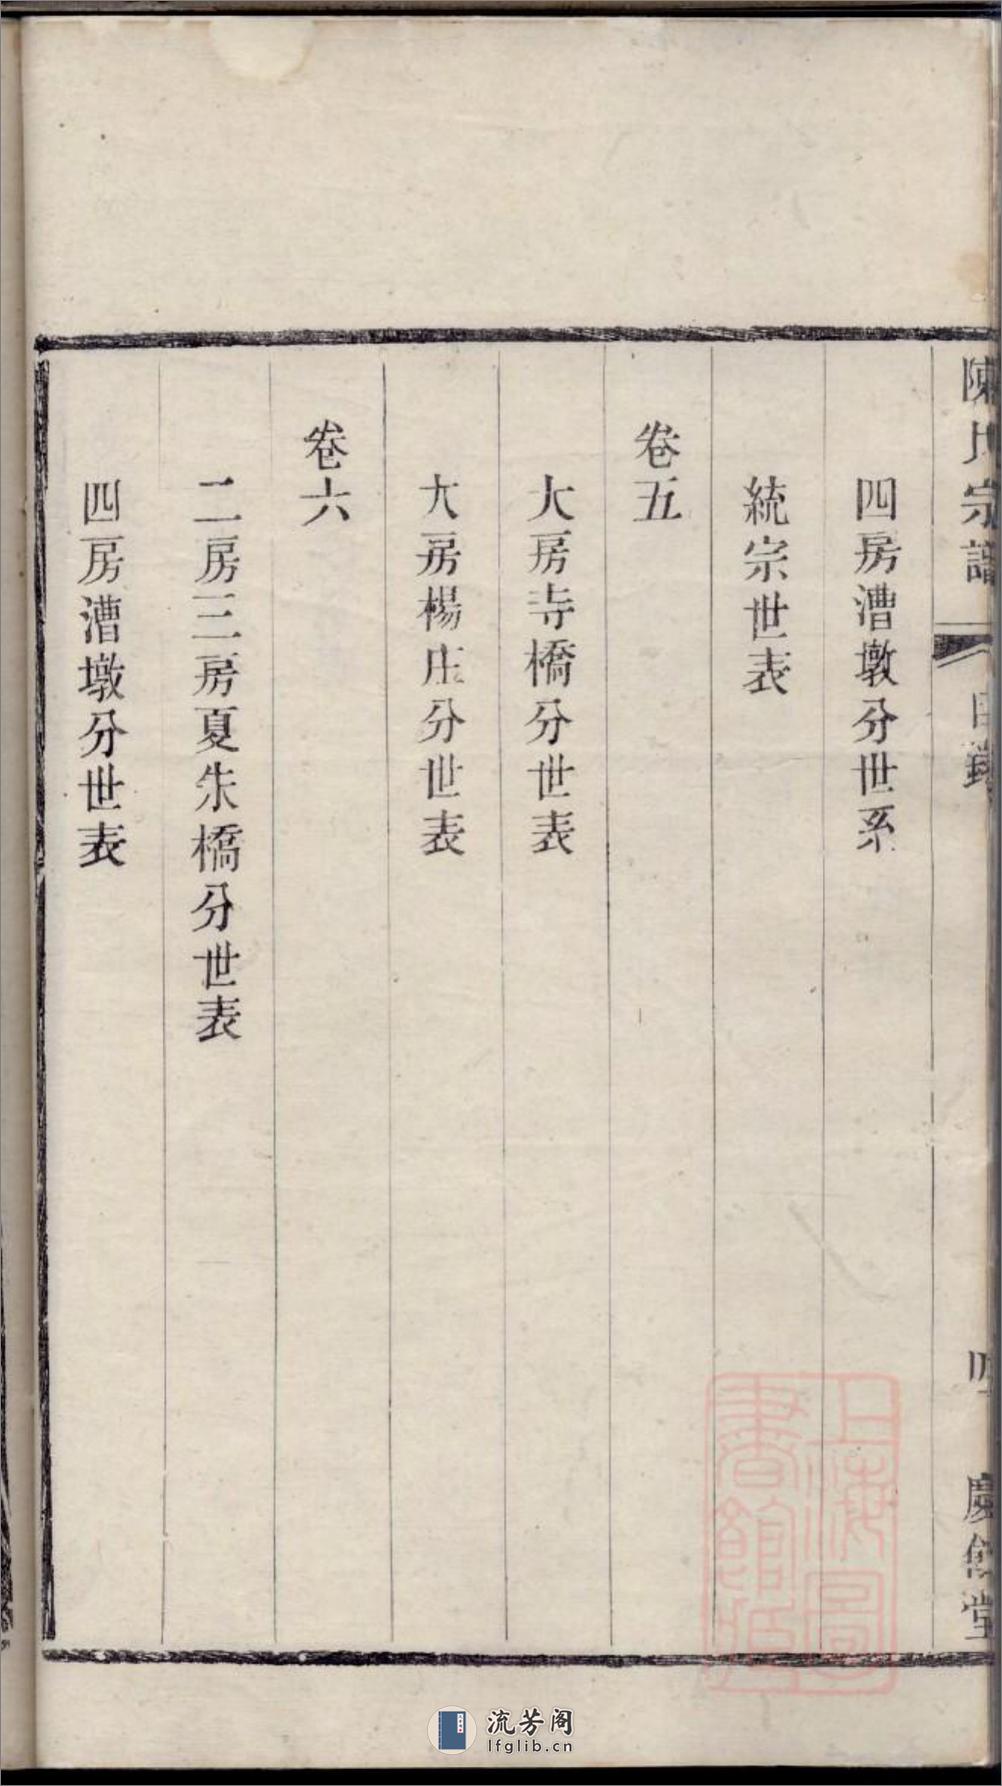 陳氏宗譜
目錄
四房漕墩分世系
統宗世表
卷五
大房寺橋分世表
大房楊庄分世表
卷六
二房三房夏朱橋分世表
四房漕墩分世表
上海圖
書館藏
流芳阁
lfglib.cn